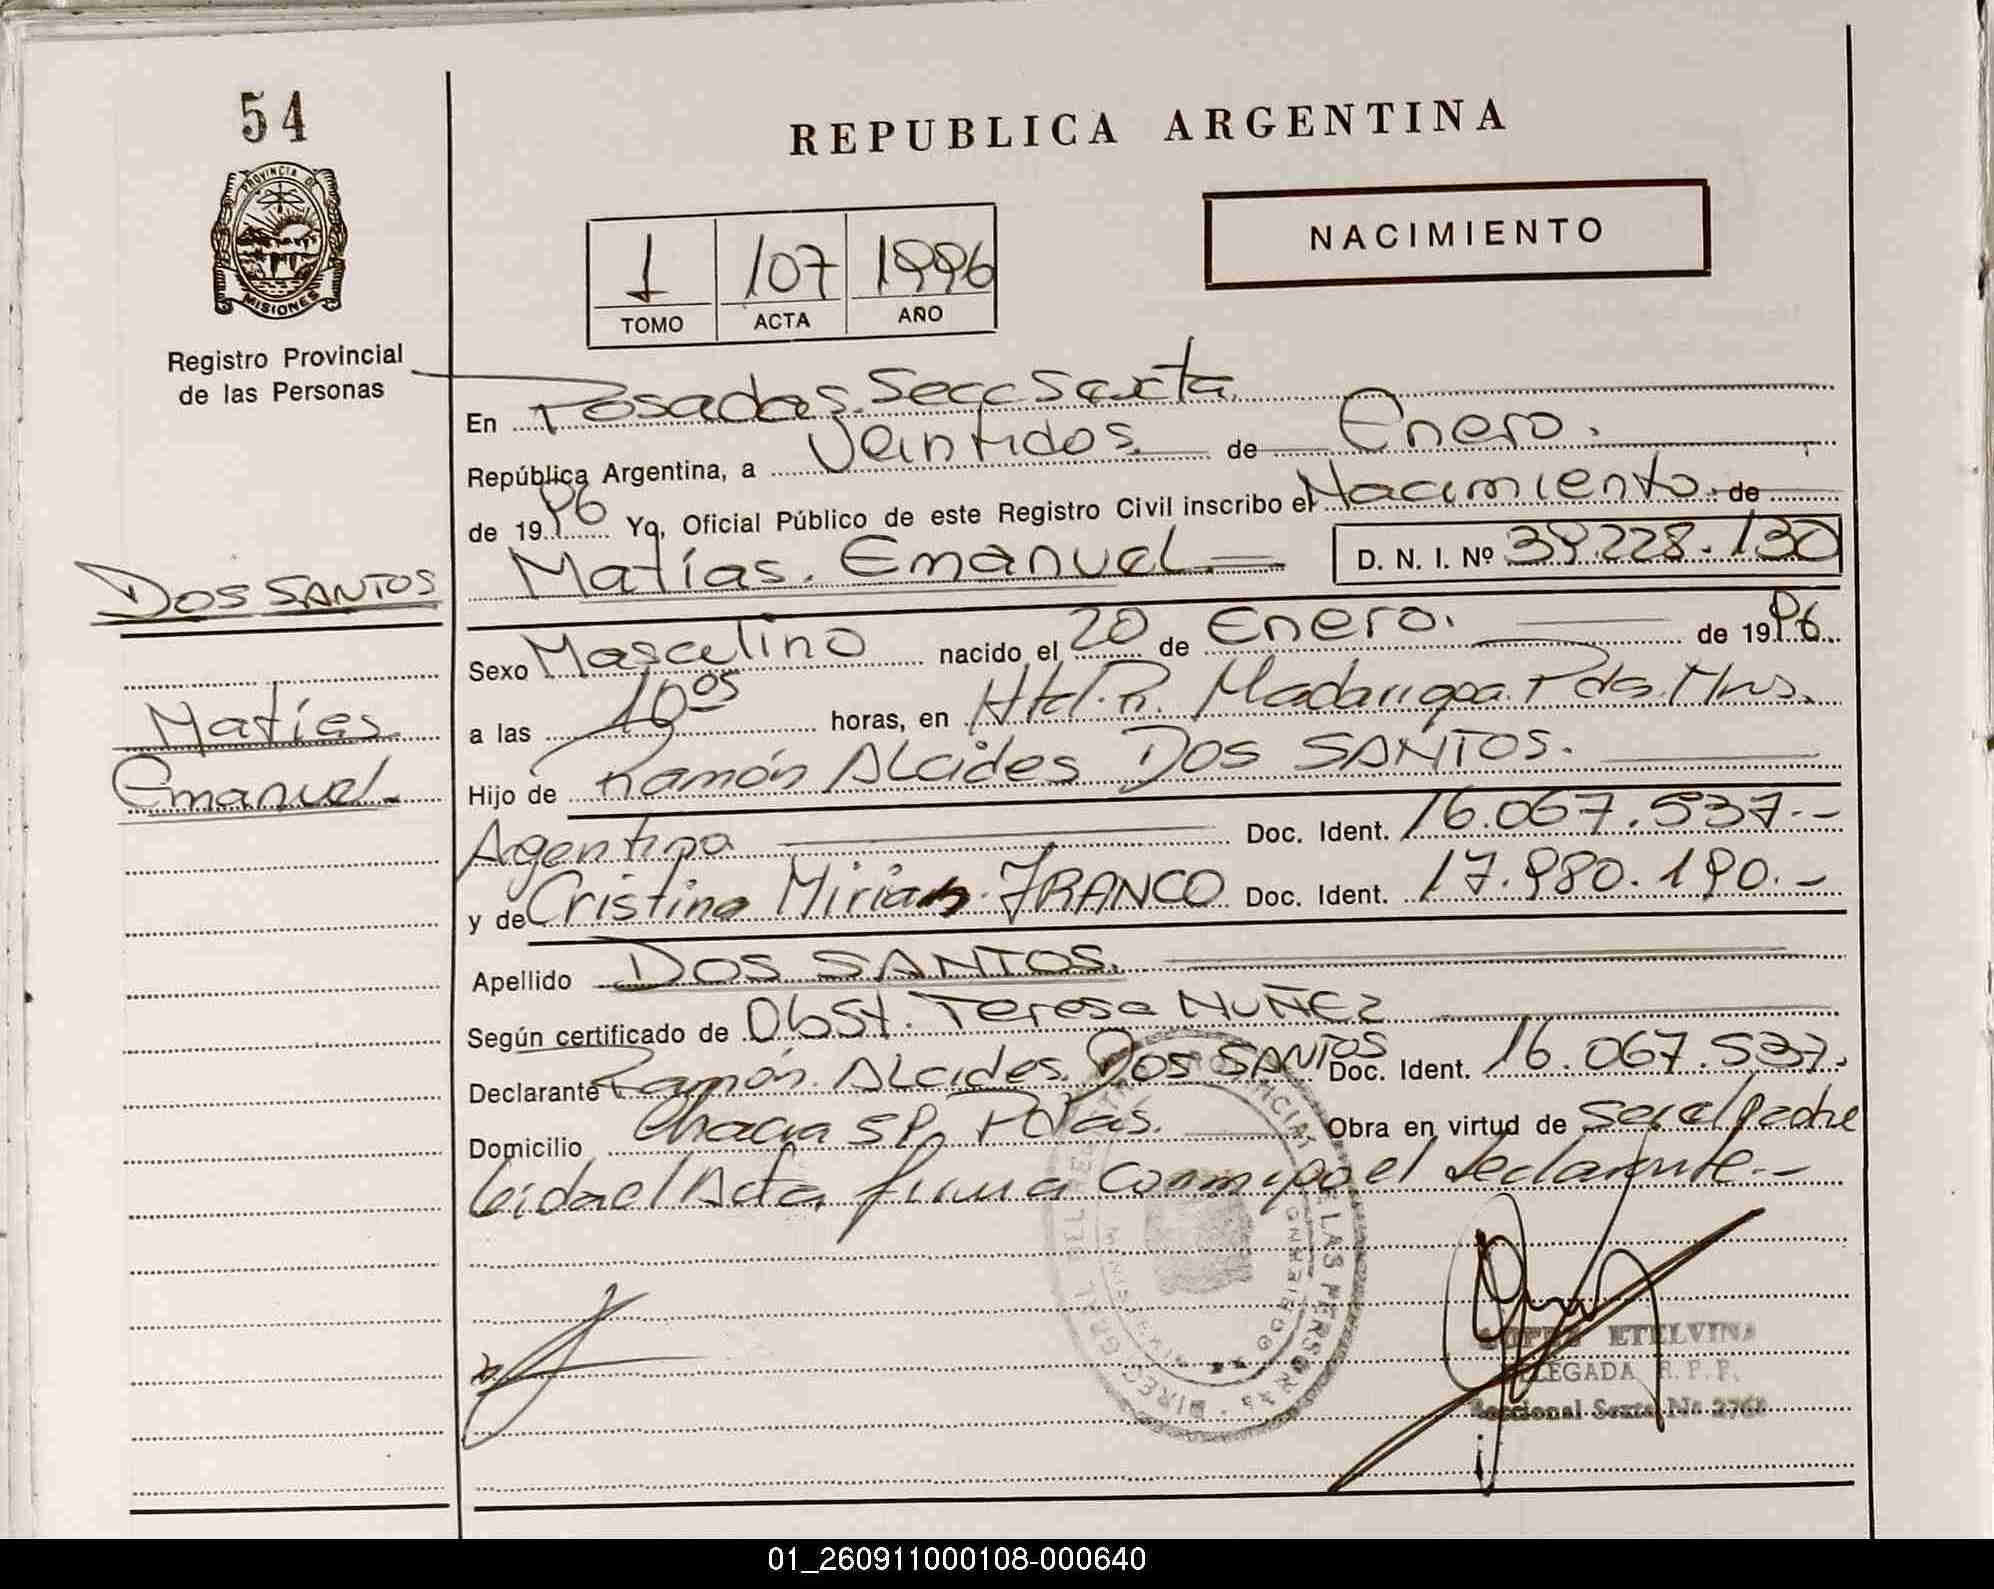 54
PROVINCIA DE
MISIONES
Registro Provincial
de las Personas
REPUBLICA ARGENTINA
NACIMIENTO
1 107 1996
TOMO ACTA AÑO
En Posadas Secc Sexta
República Argentina, a Veintidos de Enero.
de 1996 Yo, Oficial Público de este Registro Civil inscribo el Nacimiento de
Matías Emanuel D. N. I. Nº 39.228.130
DOS SANTOS
Matías
Emanuel
Sexo Masculino nacido el 20 de Enero. de 1996
a las 10 05 horas, en Htal. R. Madariaga Pdas. Mns.
Hijo de Ramón Alcides DOS SANTOS.
Argentina Doc. Ident. 16.067.537.-
y de Cristina Mirian FRANCO Doc. Ident. 17.980.190.-
Apellido DOS SANTOS.
Según certificado de Obst. Teresa NUÑEZ
Declarante Ramón Alcides DOS SANTOS Doc. Ident. 16.067.537.
Domicilio Chacra Pdas. Obra en virtud de ser el padre
leida el Acta, firma conmigo el declarante.-
ETELVINA
DELEGADA R. P. P.
Seccional Sexta Nº
DIREC. GRAL. DEL REGISTRO PROVINCIAL DE LAS PERSONAS
01_260911000108-000640